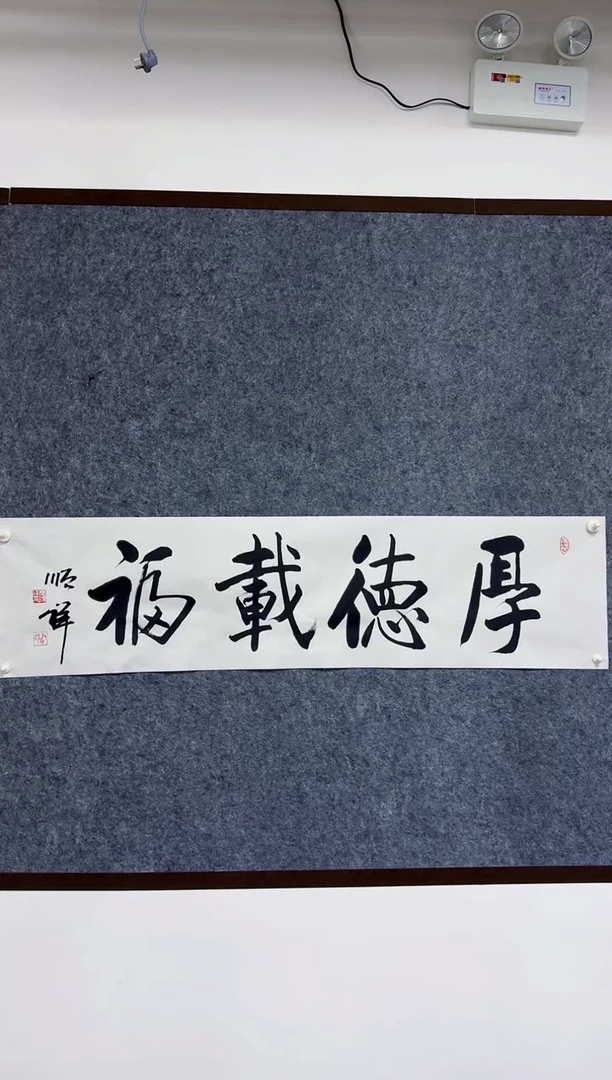 厚德載福
順祥